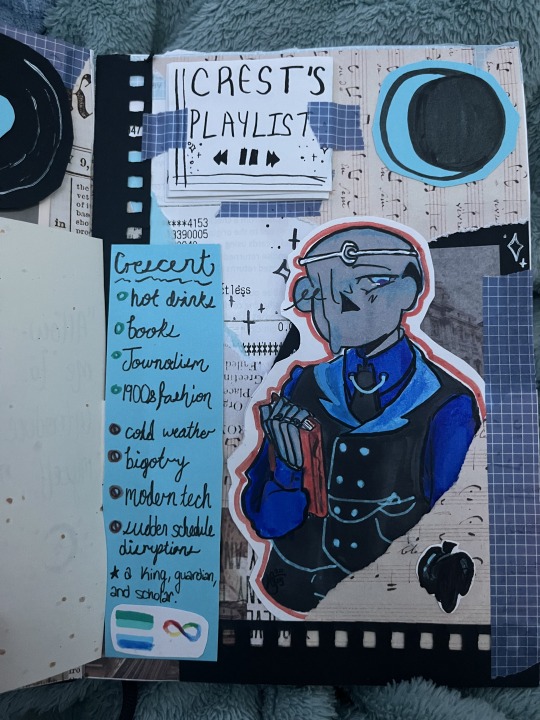 CREST'S
PLAYLIST
****4153
8390005
Crescent
hot drinks
books
Journalism
1900s fashion
cold weather
bigotry
modern tech
sudden schedule
disruptions
★ a king, guardian,
and scholar.